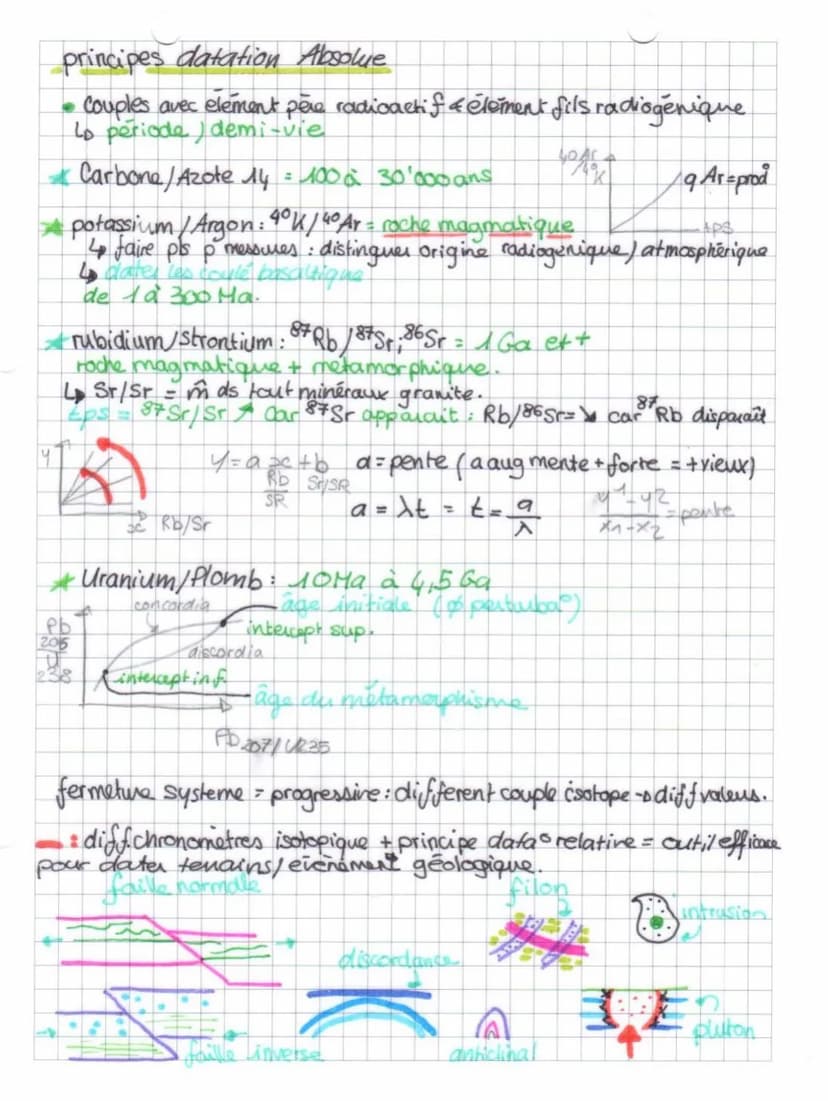 principes datation Absolue
• couples avec élément père radioactif & élément fils radiogénique
↳ période / demi-vie
★ Carbone/Azote 14 = 100 à 30'000 ans
40Ar
/40K
q Ar = prod°
tps
★ potassium / Argon : ⁴⁰K/⁴⁰Ar = roche magmatique
↳ faire pls p messures : distinguer origine radiogénique / atmosphérique
↳ dater les coulé basaltique
de 1 à 300 Ma.
★ rubidium/strontium : ⁸⁷Rb/⁸⁷Sr ; ⁸⁶Sr = 1 Ga et +
roche magmatique + métamorphique.
↳ Sr/Sr = m̂ ds tout minéraux granite.
tps = ⁸⁷Sr/Sr ↗ car ⁸⁷Sr apparait : Rb/⁸⁶Sr = ↘ car ⁸⁷Rb disparaît
y
x Rb/Sr
y = a x + b
Rb/SR Sr/SR
a = pente (a augmente + forte = + vieux)
a = λt = t = a/λ
y1-y2/x1-x2 = pente
★ Uranium/Plomb : 10 Ma à 4,5 Ga
concordia
âge initiale (ø perturba°)
Pb
206
U
238
intercept sup.
discordia
intercept inf.
âge du métamorphisme
Pb 207/U235
fermeture systeme = progressive : different couple isotope → diff valeus.
— : diff chronomètres isotopique + principe data° relative = outil efficace
pour dater terrains/ évènement géologique.
faille normale
filon
intrusion
discordance
pluton
faille inverse
anticlinal